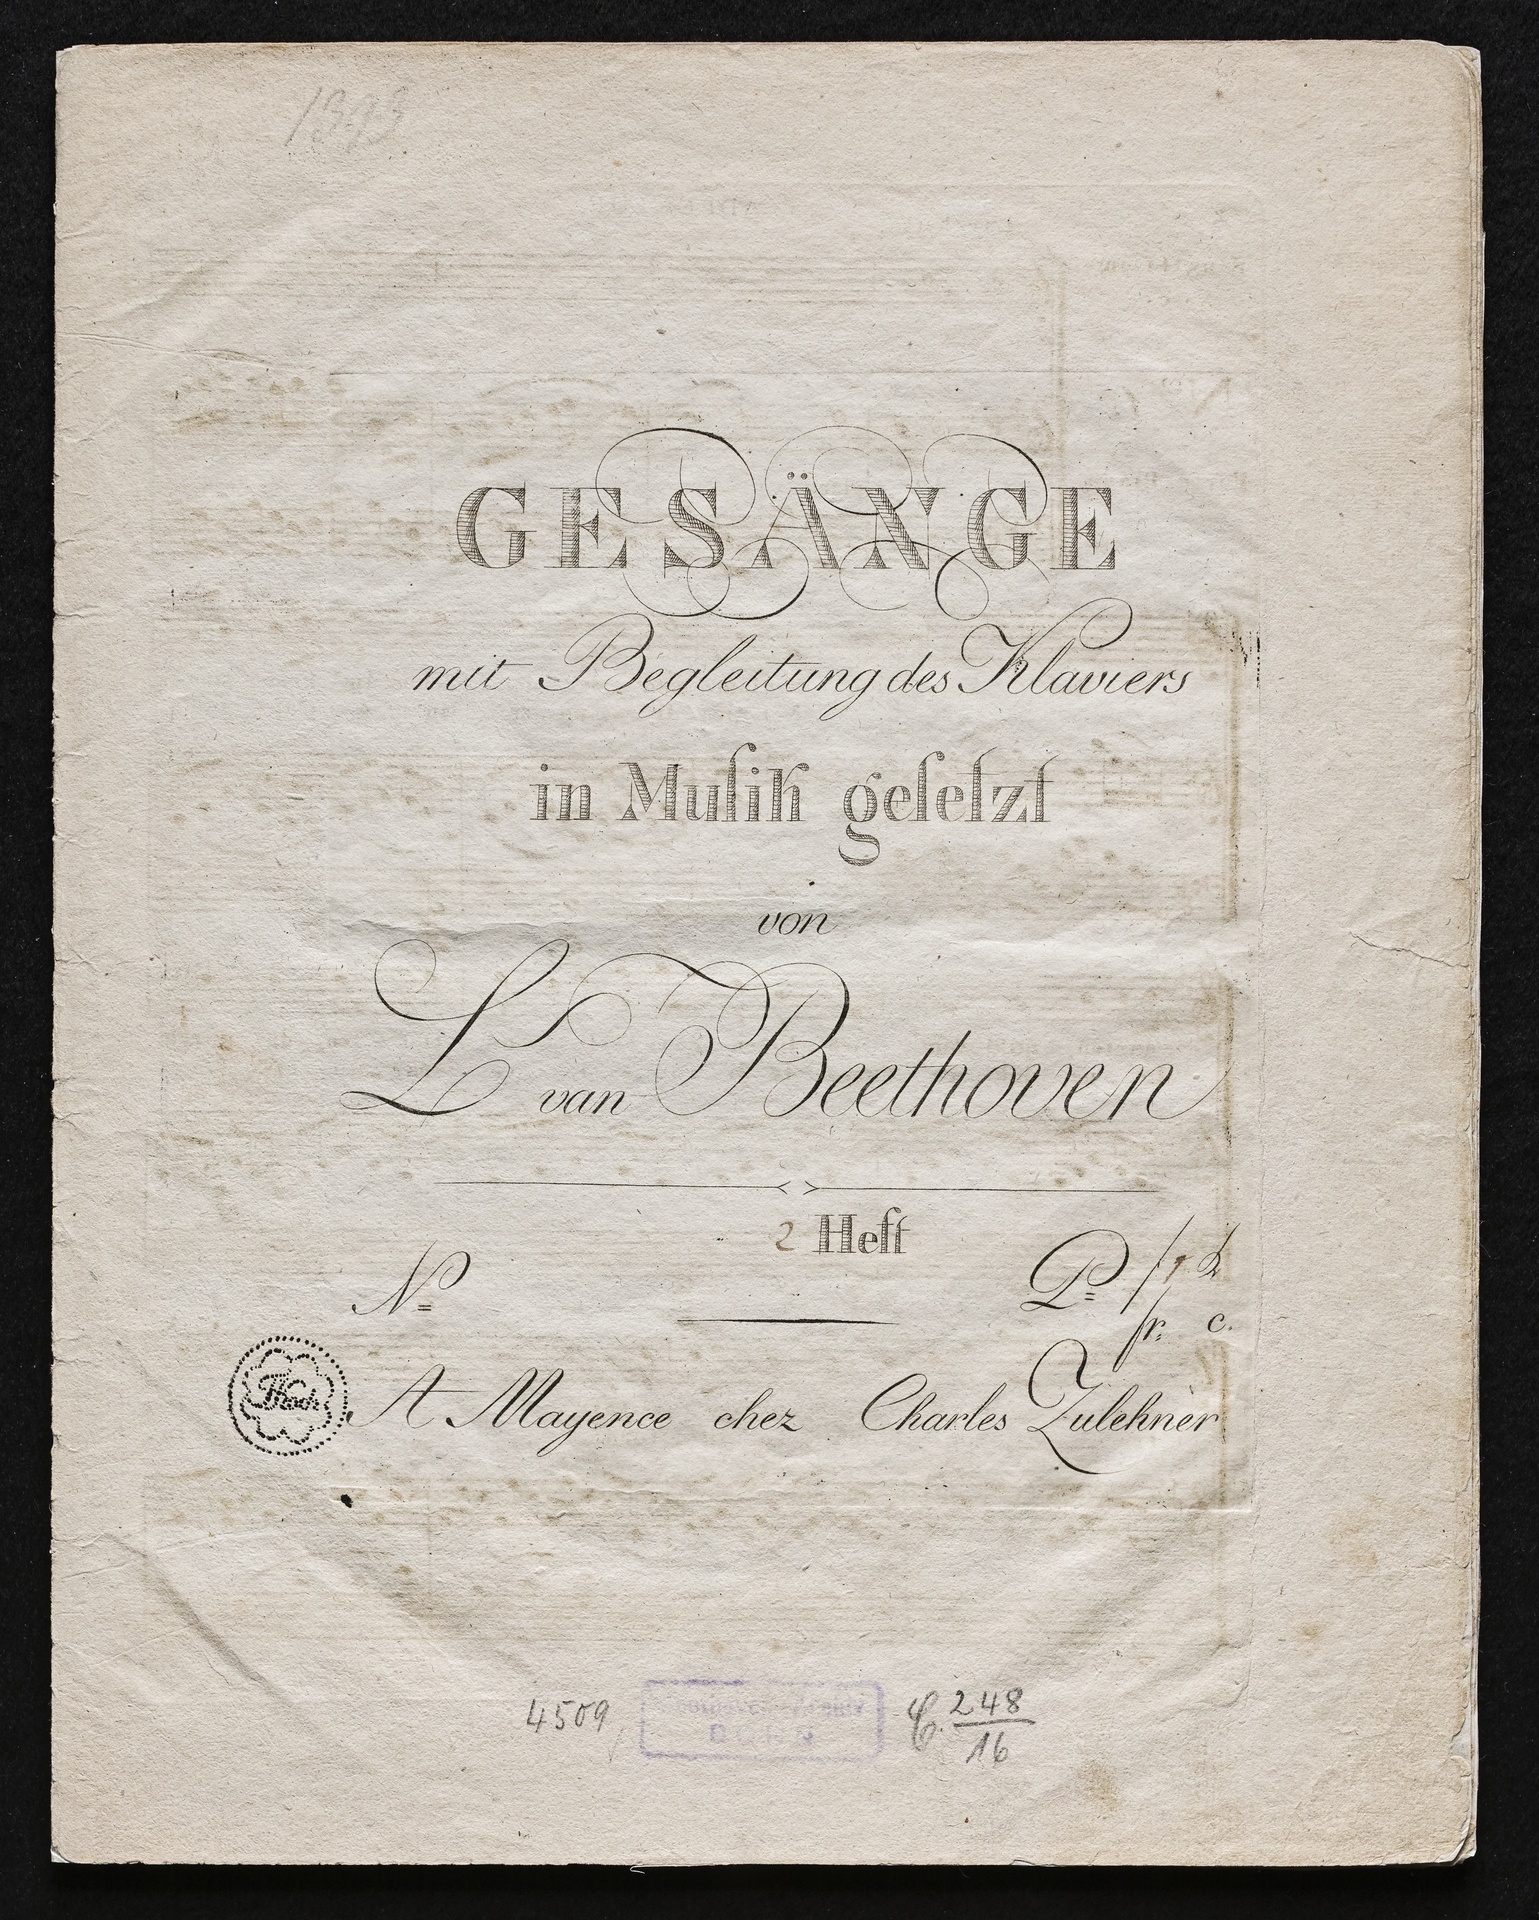 GESÄNGE
mit Begleitung des Klaviers
in Muſik geſetzt
von
L van Beethoven
2 Heft
N.º P.º f 1 k
fr: c.
A Mayence chez Charles Zulehner
4509 C. 248/16